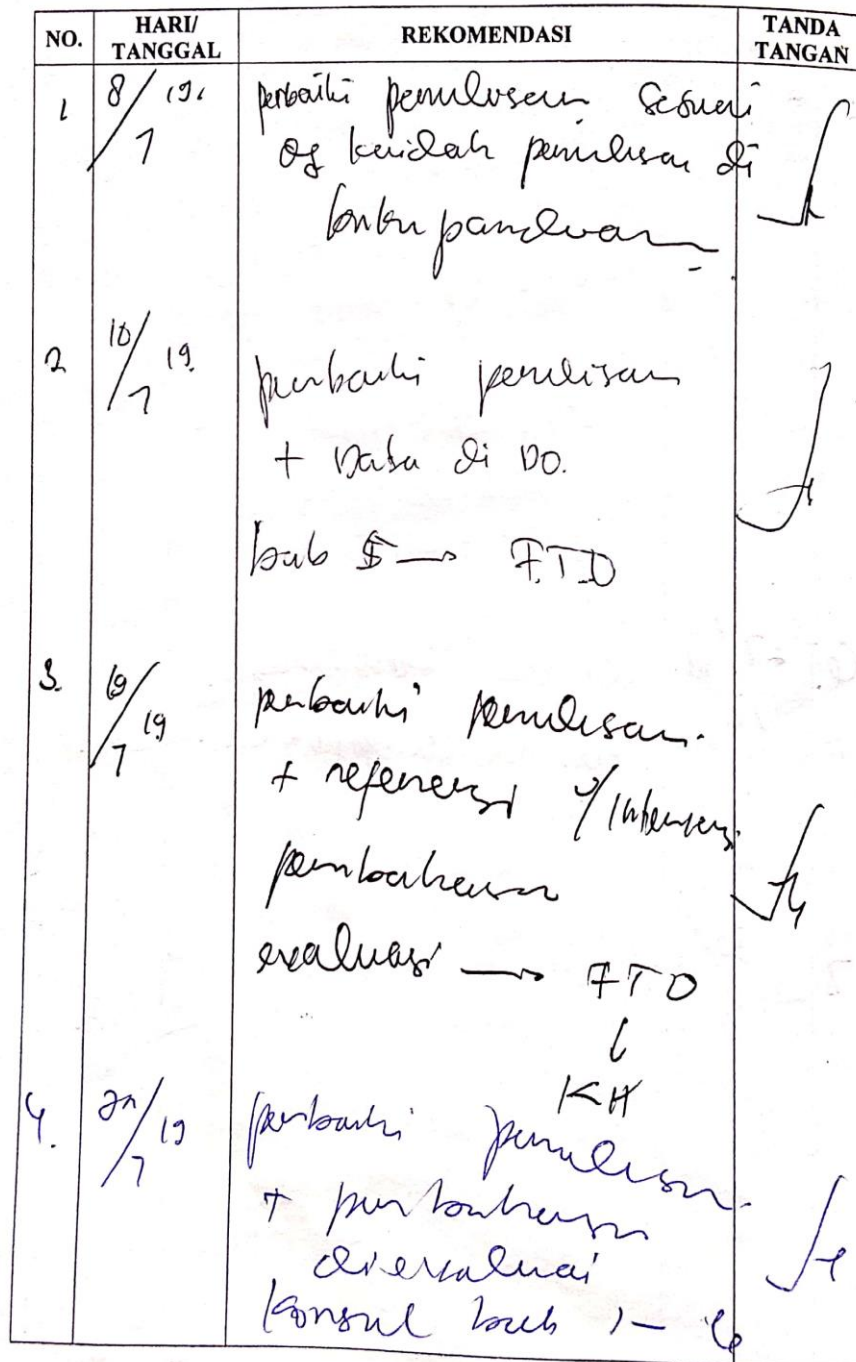 NO. HARI/ TANGGAL REKOMENDASI TANDA TANGAN
1 8/7 19. perbaiki penulisan sesuai
dg kaidah penulisan di
buku panduan
2 10/7 19. perbaiki penulisan
+ Data di DO.
bab 5 → FTD
3. 19/7 19 perbaiki penulisan
+ referensi u/ intervensi
pembahasan
evaluasi → FTD
↓
KH
4. /7 19 perbaiki penulisan
+ pembahasan
di evaluasi
Konsul bab 1 -